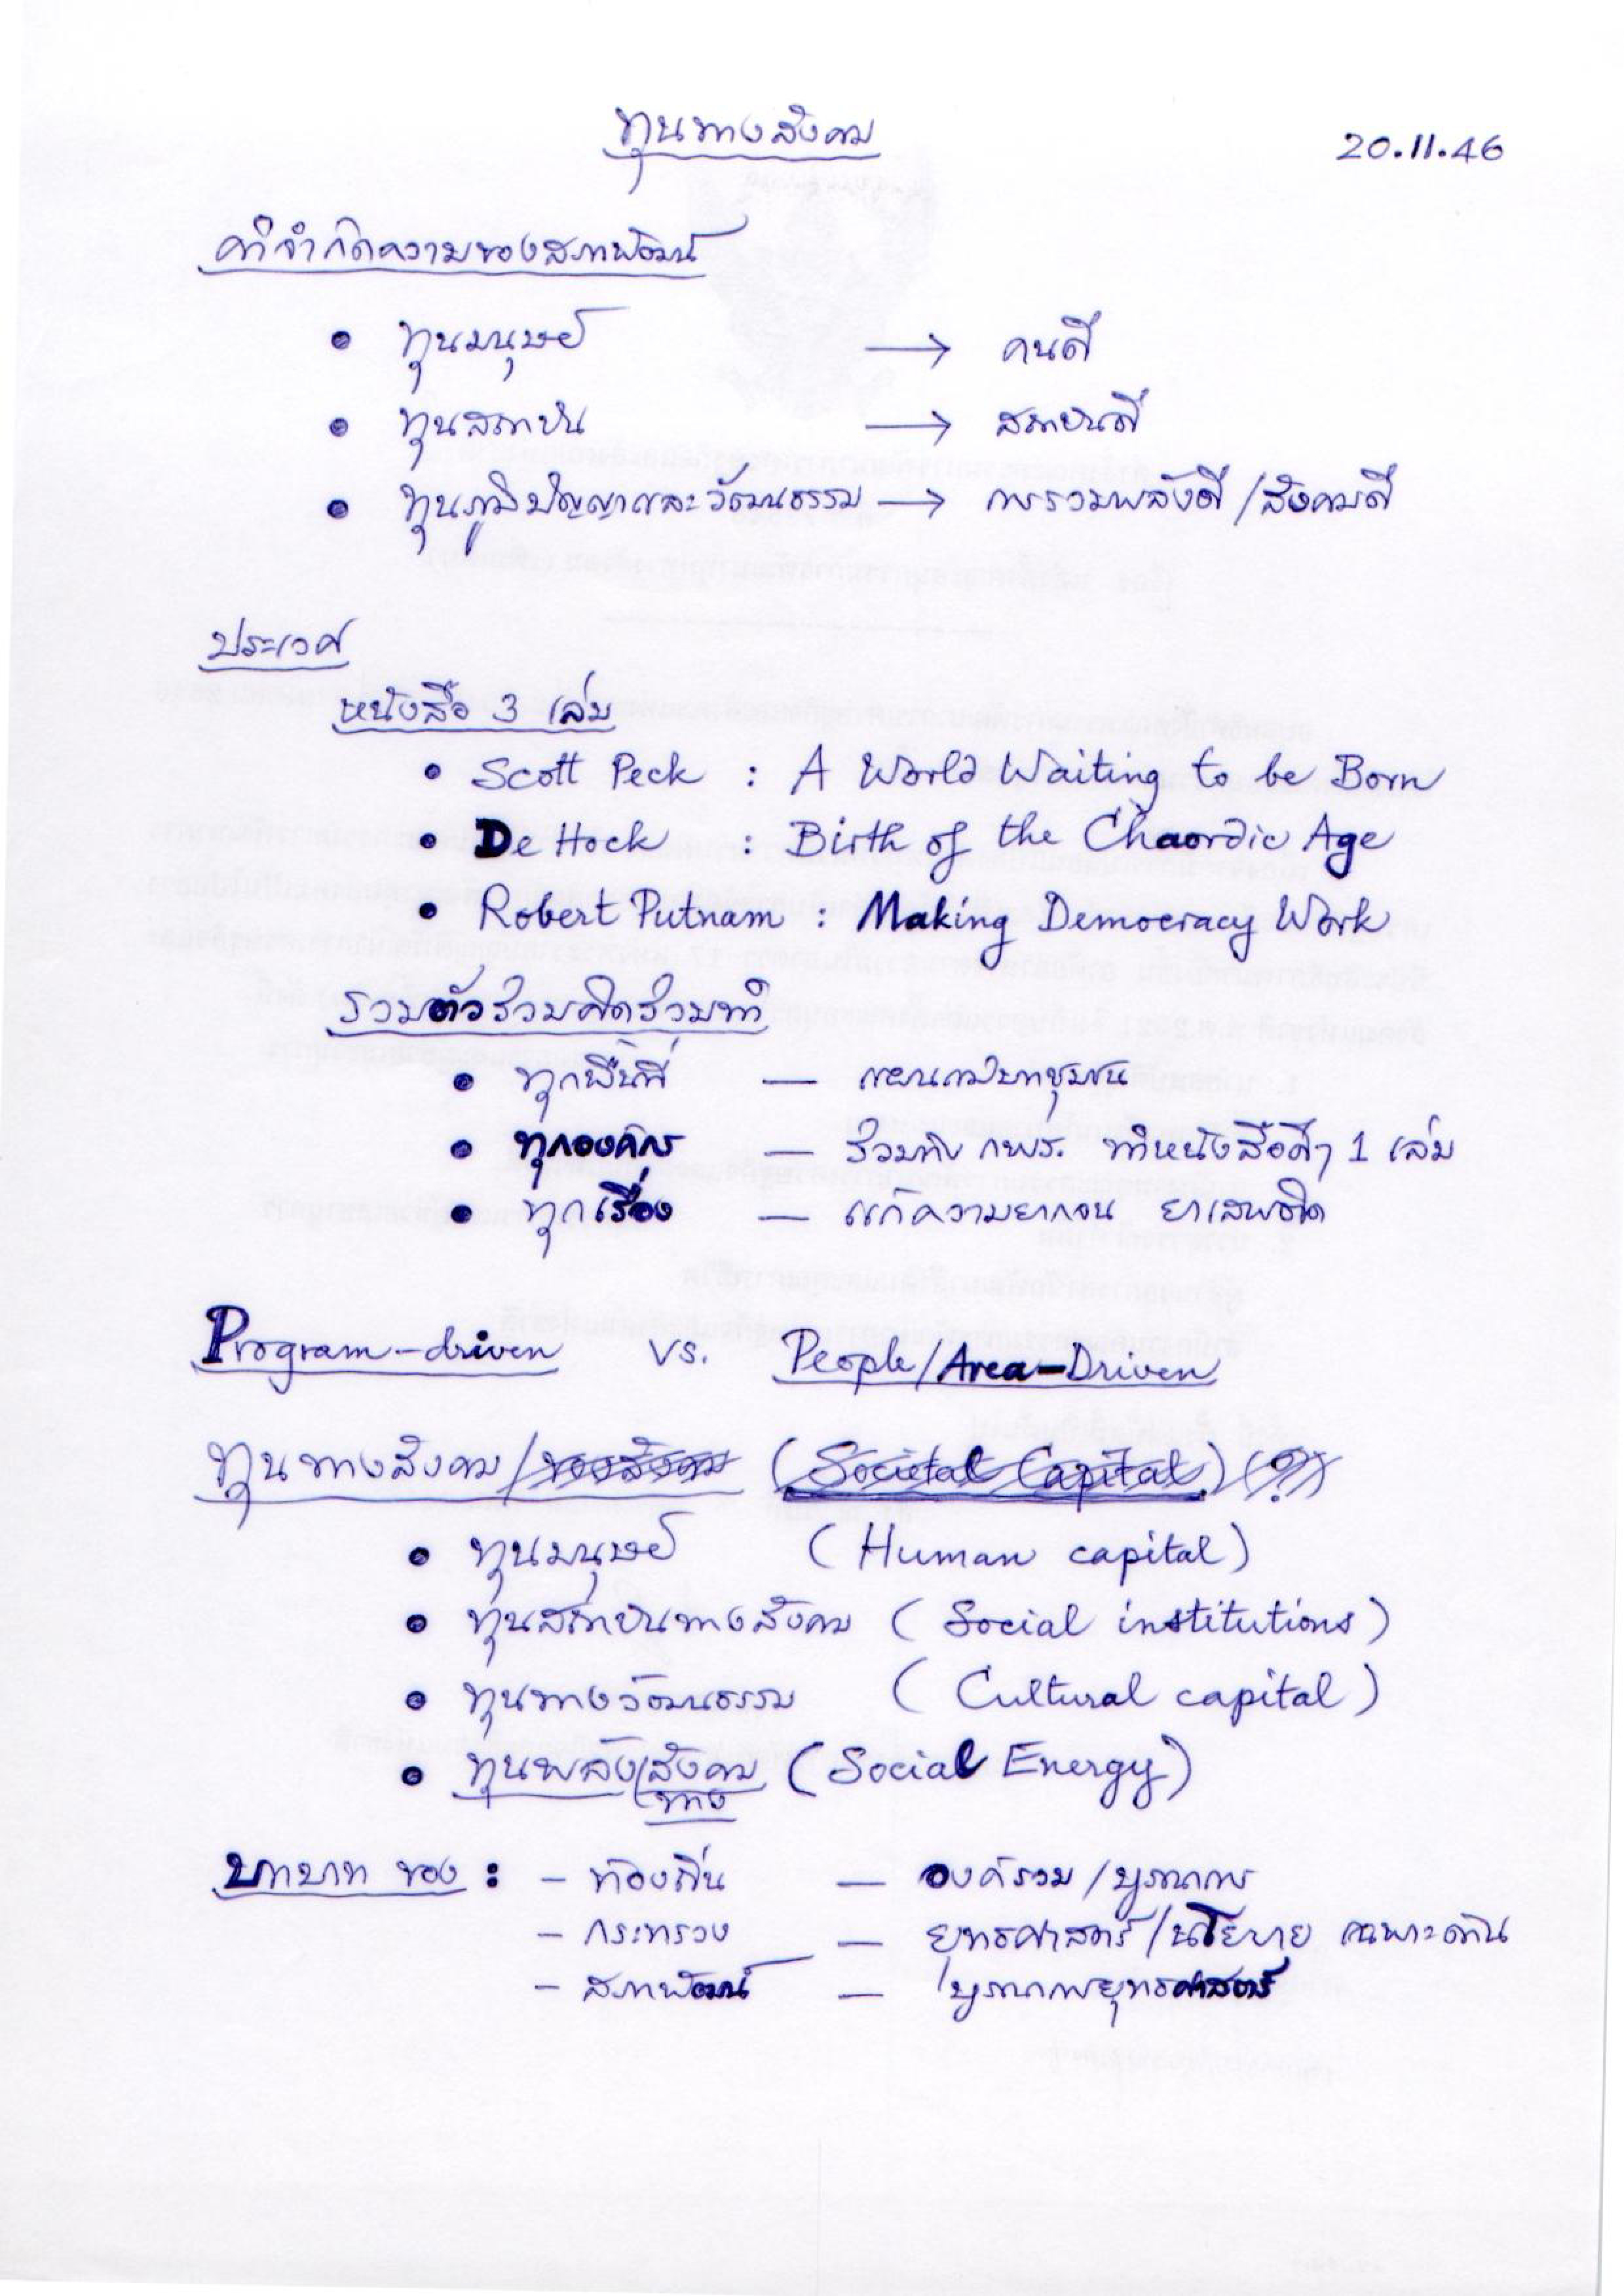 ทุนทางสังคม
20.11.46
คำจำกัดความของสภาพัฒน์
• ทุนมนุษย์ → คนดี
• ทุนสถาบัน → สถาบันดี
• ทุนภูมิปัญญาและวัฒนธรรม → การรวมพลังดี/สังคมดี
ประเวศ
หนังสือ 3 เล่ม
• Scott Peck : A World Waiting to be Born
• De Hock : Birth of the Chaordic Age
• Robert Putnam : Making Democracy Work
รวมตัวร่วมคิดร่วมทำ
• ทุกพื้นที่ — แผนแม่บทชุมชน
• ทุกองค์กร — ร่วมกับ กพร. ทำหนังสือดีๆ 1 เล่ม
• ทุกเรื่อง — แก้ความยากจน ยาเสพติด
Program-driven vs. People/Area-Driven
ทุนทางสังคม/ของสังคม (Societal Capital) (?)
• ทุนมนุษย์ (Human capital)
• ทุนสถาบันทางสังคม (Social institutions)
• ทุนทางวัฒนธรรม (Cultural capital)
• ทุนพลังทางสังคม (Social Energy)
บทบาท ของ : - ท้องถิ่น — องค์รวม/บูรณาการ
- กระทรวง — ยุทธศาสตร์/นโยบาย เฉพาะด้าน
- สภาพัฒน์ — บูรณาการยุทธศาสตร์